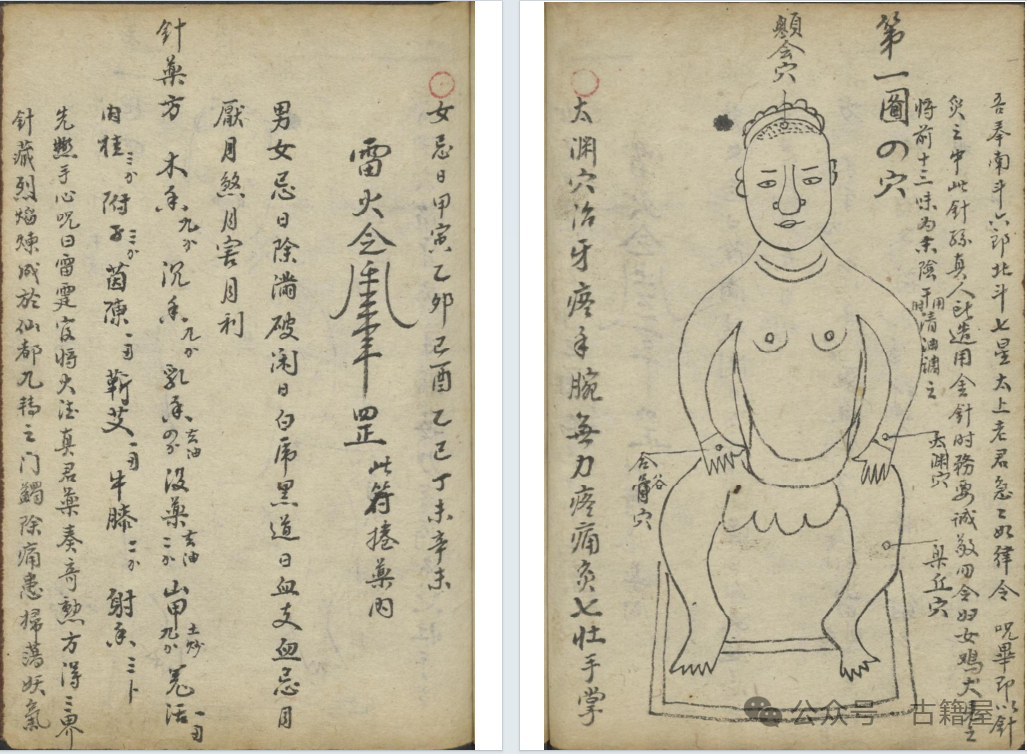 女忌日甲寅乙卯己酉乙巳丁未辛未
雷火令
罡
此符捲藥内
男女忌日除滿破闲日白虎黑道日血支血忌月
厭月煞月害月利
針藥方 木香九分 沉香九分 乳香四分去油 没藥二分去油 山甲九分土炒 羌活一刃
肉桂三分 附子三分 茵陳一刃 蘄艾一刃 牛膝二分 射香三卜
先熟手心咒曰雷霆官將火德真君藥奏奇勲方得三界
針藏烈焰煉成於仙都九轉之门蠲除痛患掃蕩妖氣
吾奉南斗六郎北斗七星太上老君急〻如律令 咒畢即以針
灸之中此針孫真人所造用舍針时務要诚敬四令妇女鸡犬見之
将前十三味为末陰干用时清油调之
第一圖の穴
顖会穴
太渊穴
梁丘穴
合谷穴
太渊穴治牙疼手腕無力疼痛灸七壮手掌
公众号·古籍屋